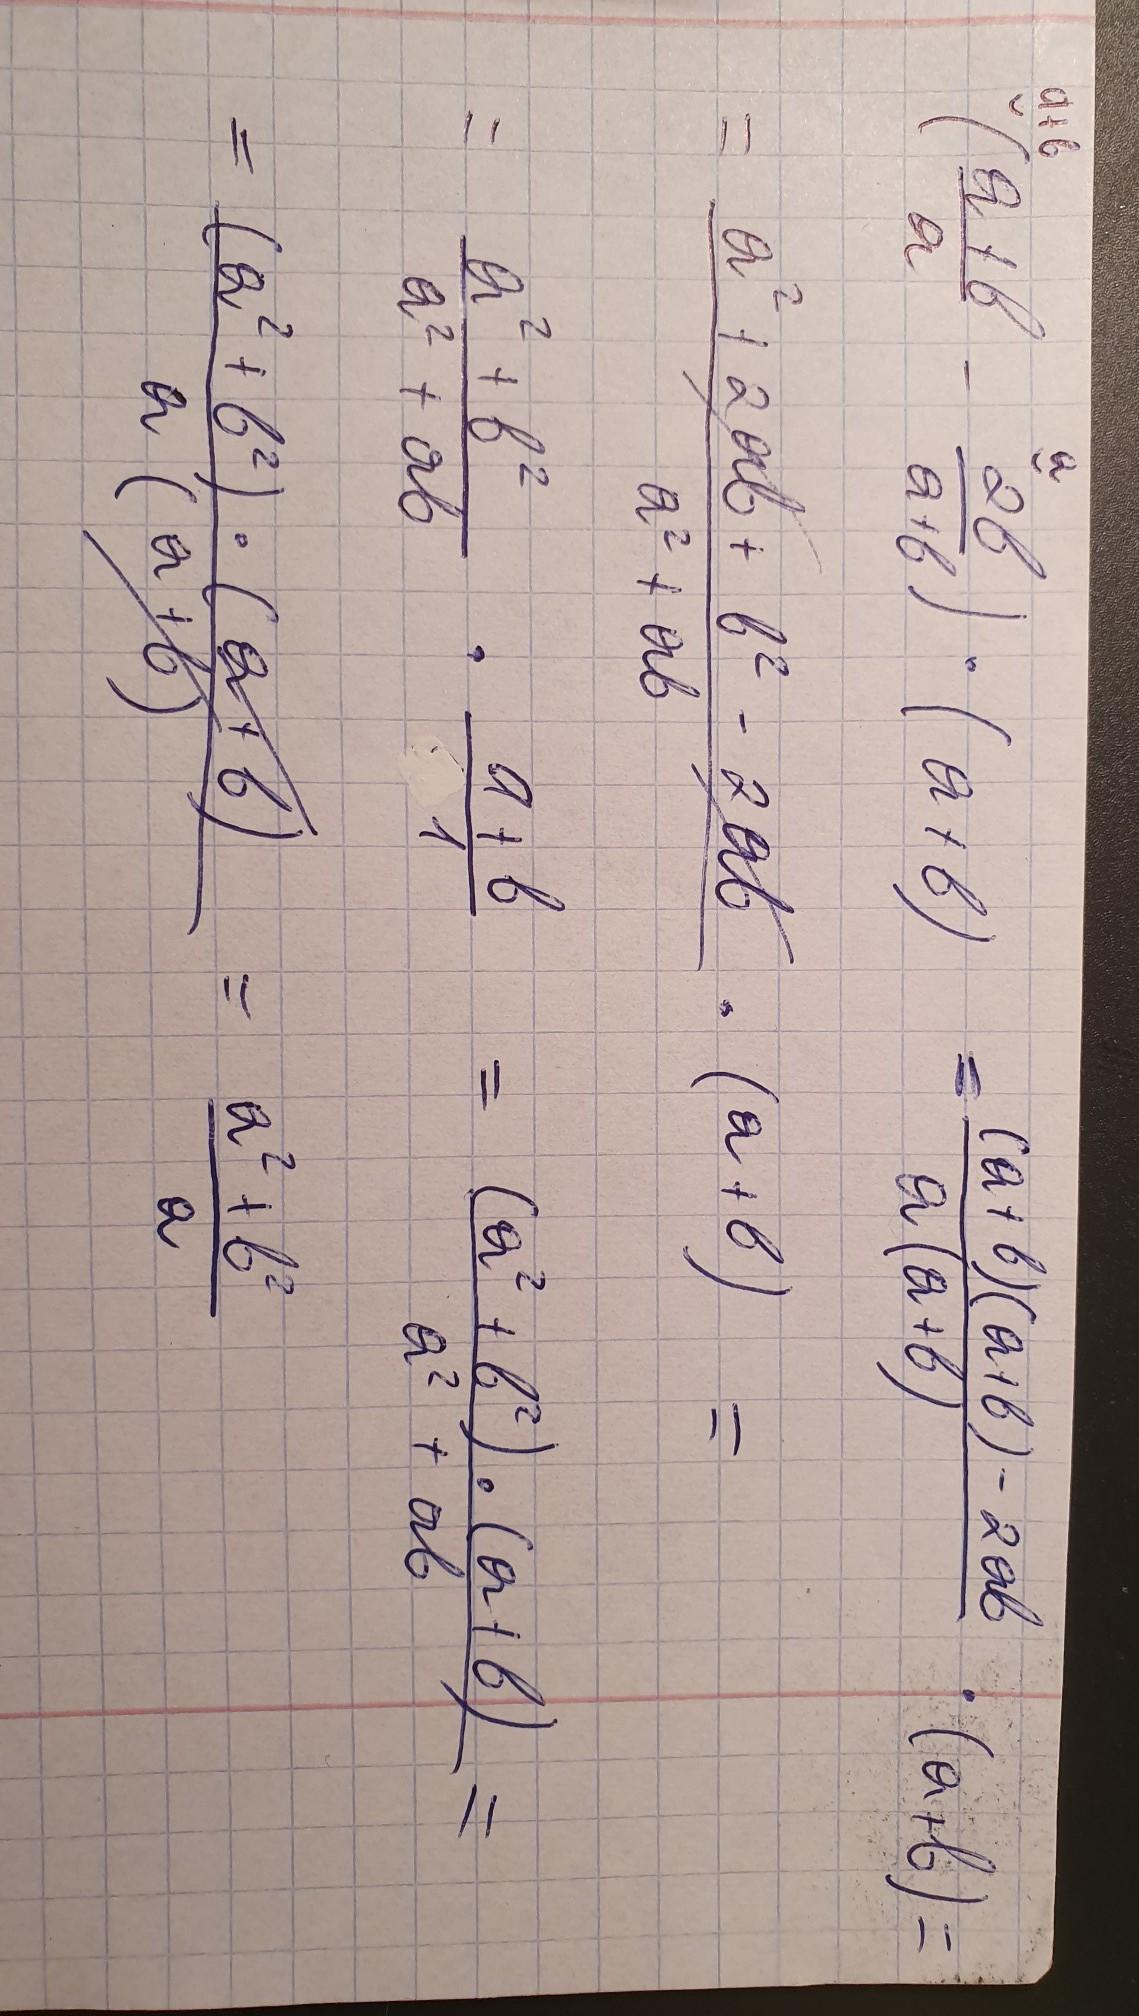 (a+b/a - 2b/a+b) · (a+b) = (a+b)(a+b)-2ab/a(a+b) · (a+b) =
= a²+2ab+b²-2ab/a²+ab · (a+b) =
= a²+b²/a²+ab · a+b/1 = (a²+b²)·(a+b)/a²+ab =
= (a²+b²)·(a+b)/a(a+b) = a²+b²/a